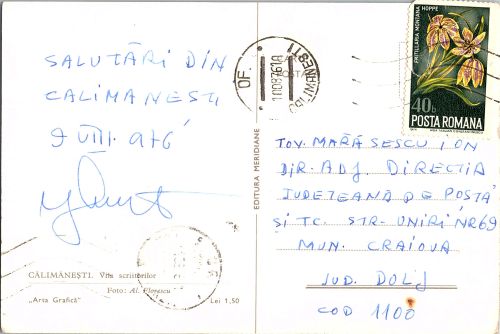 SALUTĂRI DIN
CALIMANESTI
9 VIII. 976
CĂLIMĂNEȘTI. Vila scriitorilor
Foto: Al. Florescu
„Arta Grafică”
Lei 1,50
EDITURA MERIDIANE
OF.
CALIMANESTI
FRITILLARIA MONTANA
HOPPE
40b
POSTA ROMANA
TOV. MARĂSESCU ION
DIR. ADJ. DIRECTIA
JUDETEANĂ DE POSTĂ
SI TC. STR. UNIRI NR 69
MUN. CRAIOVA
JUD. DOLJ
COD 1100